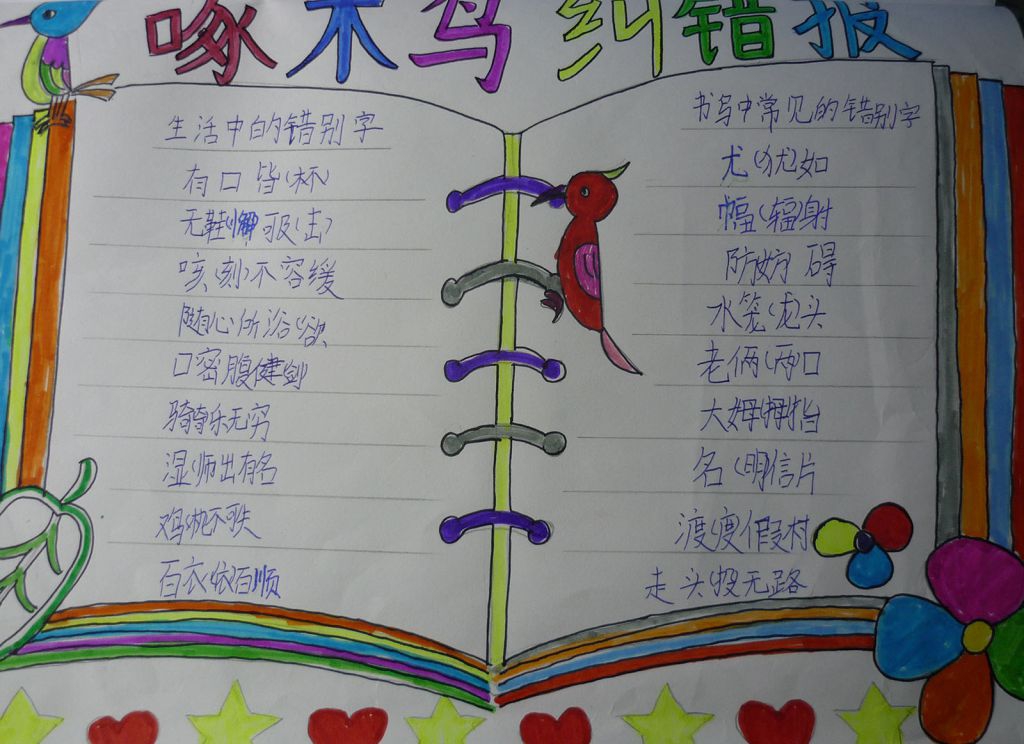 啄木鸟纠错报
生活中的错别字
有口皆(杯)
无鞋(懈)可吸(击)
咳(刻)不容缓
随心所浴(欲)
口密腹健(剑)
骑(其)乐无穷
湿(师)出有名
鸡(机)不可失
百衣(依)百顺
书写中常见的错别字
尤(犹)如
幅(辐)射
防(妨)碍
水笼(龙)头
老俩(两)口
大姆(拇)指
名(明)信片
渡(度)假村
走头(投)无路